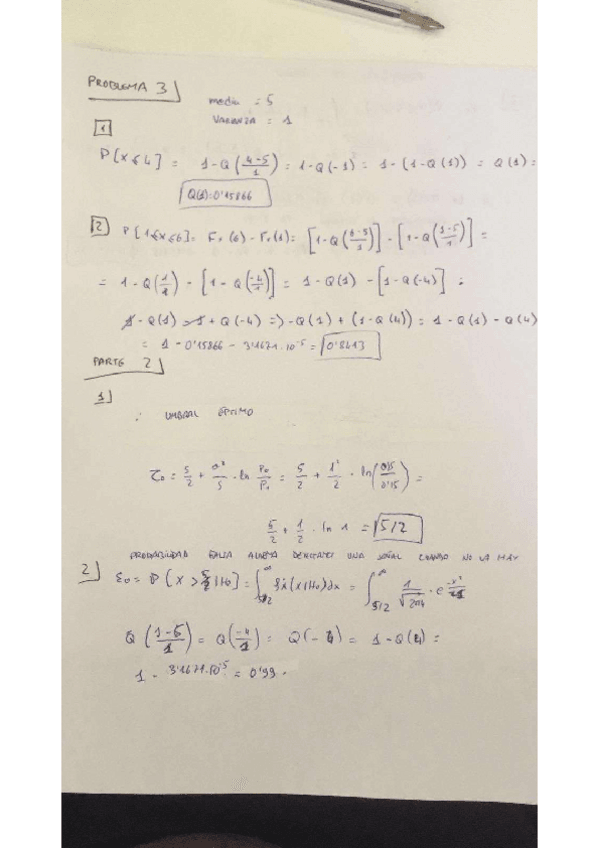 PROBLEMA 3
media = 5
VARIANZA = 1
1
P[X≤4] = 1-Q(4-5/1) = 1-Q(-1) = 1-(1-Q(1)) = Q(1) =
Q(1)=0'15866
2 P[1≤X≤6] = Fx(6) - Fx(1) = [1-Q(6-5/1)] - [1-Q(1-5/1)] =
= 1-Q(1/1) - [1-Q(-4/1)] = 1-Q(1) - [1-Q(-4)] =
1-Q(1) - 1 + Q(-4) => -Q(1) + (1-Q(4)) = 1-Q(1)-Q(4)
= 1 - 0'15866 - 3'1671·10⁻⁵ = 0'8413
PARTE 2
1
UMBRAL ÓPTIMO
τ₀ = 5/2 + σ²/5 · ln P₀/P₁ = 5/2 + 1²/2 · ln(0'5/0'5) =
5/2 + 1/2 · ln 1 = 5/2
PROBABILIDAD FALSA ALARMA DETECTAMOS UNA SEÑAL CUANDO NO LA HAY
2 ε₀ = P[X > 5/2 | H₀] = ∫5/2 ∞ fx(x|H₀)dx = ∫5/2 ∞ 1/√2π1 · e
Q(1-5/1) = Q(-4/1) = Q(-4) = 1-Q(4) =
1 - 3'1671·10⁻⁵ = 0'99